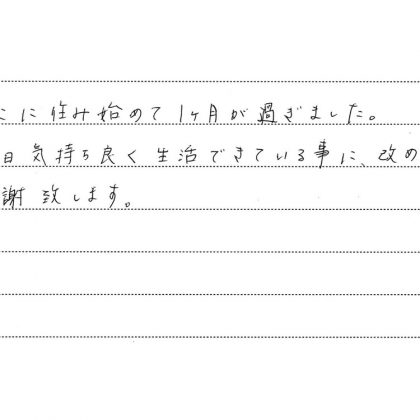 こに住み始めて1ヶ月が過ぎました。
日気持ち良く生活できている事に、改め
謝致します。